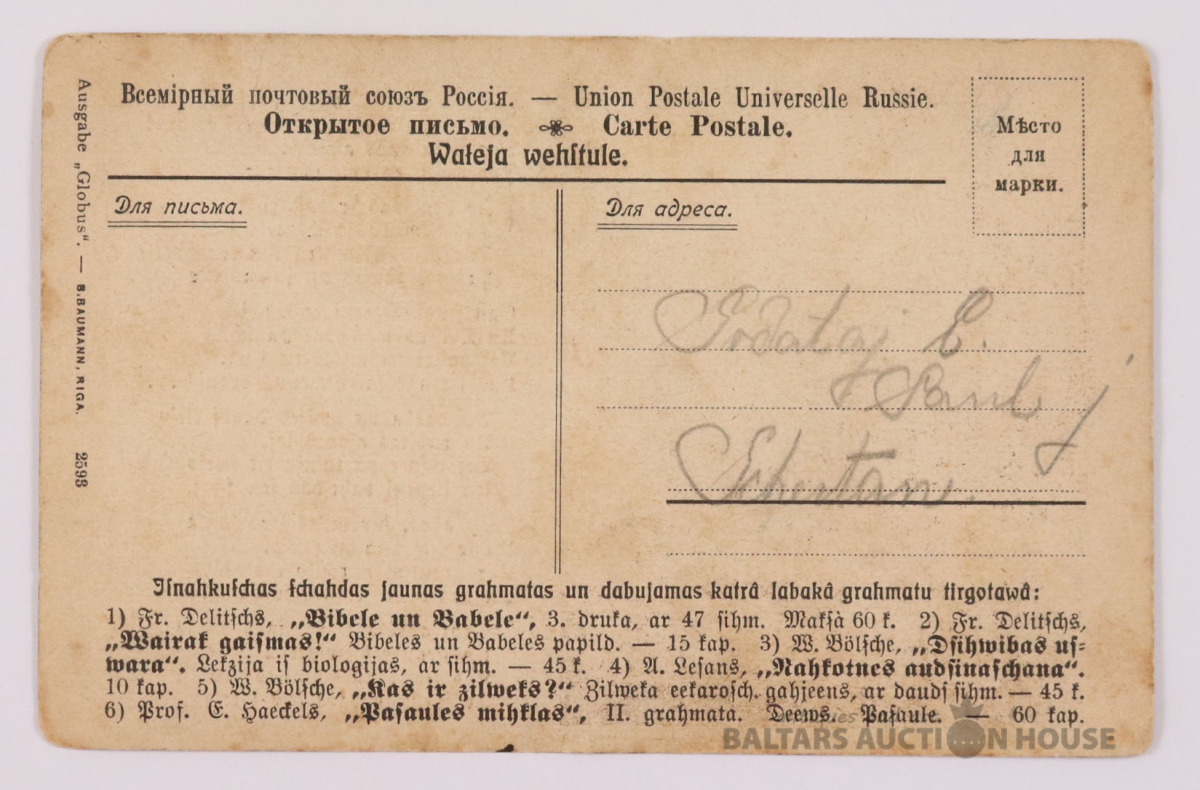 Всемірный почтовый союзъ Россія. — Union Postale Universelle Russie.
Открытое письмо. Carte Postale.
Waſeja wehſtule.
Мѣсто
для
марки.
Для письма.
Для адреса.
Ausgabe „Globus“. — B. BAUMANN, RIGA. 2593
E.
Iſnahkuſchas ſchahdas jaunas grahmatas un dabujamas katrâ labakâ grahmatu tirgotawâ:
1) Fr. Delitſchs, „Bibele un Babele“, 3. druka, ar 47 ſihm. Makſà 60 k. 2) Fr. Delitſchs,
„Wairak gaiſmas!“ Bibeles un Babeles papild. — 15 kap. 3) W. Bölſche, „Dſihwibas uſ-
wara“. Lekzija iſ bioloģijas, ar ſihm. — 45 k. 4) A. Leſans, „Nahkotnes audſinaſchana“.
10 kap. 5) W. Bölſche, „Kas ir zilweks?“ Zilweka eekaroſch. gahjeens, ar daudſ ſihm. — 45 k.
6) Prof. E. Haeckels, „Paſaules mihklas“, II. grahmata. Deews. Paſaule. — 60 kap.
BALTARS AUCTION HOUSE